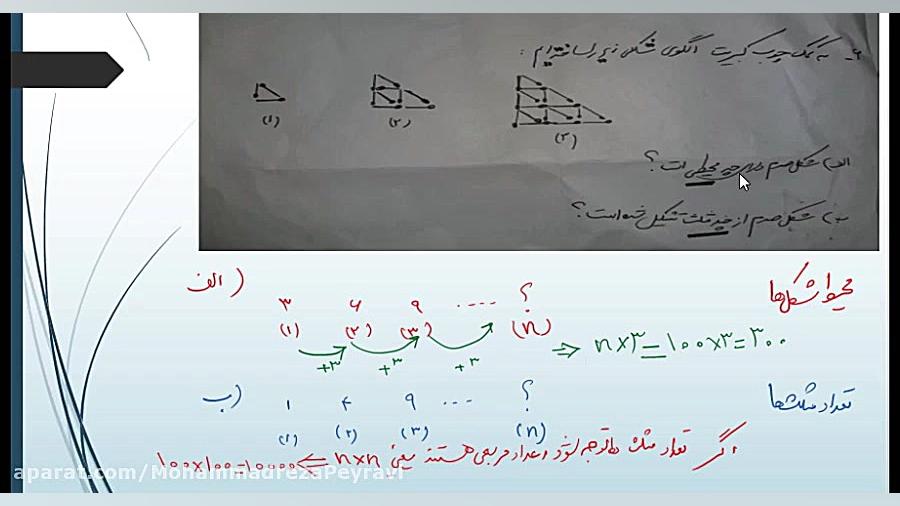 ۶- به کمک چوب کبریت الگوی شکل زیر را ساخته‌ایم :
(۱) (۲) (۳)
الف) شکل صدم دارای چه محیطی است؟
ب) شکل صدم از چند مثلث تشکیل شده است؟
محیط شکل‌ها
الف)
۳ ۶ ۹ .... ؟
(۱) (۲) (۳) (n)
+۳ +۳ +۳
⇒ n×۳ = ۱۰۰×۳ = ۳۰۰
تعداد مثلث‌ها
ب)
۱ ۴ ۹ ... ؟
(۱) (۲) (۳) (n)
اگر تعداد مثلث ها توجه شود اعداد مربعی هستند یعنی n×n ⇐ ۱۰۰×۱۰۰=۱۰۰۰۰
aparat.com/MohammadrezaPeyravi